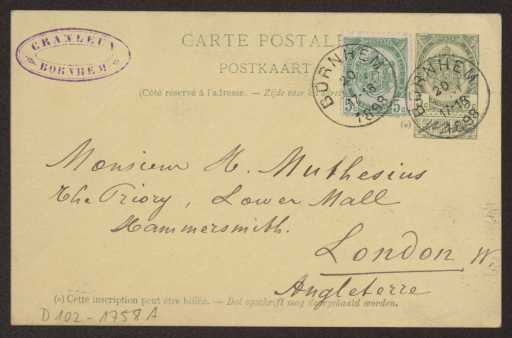 CRANLEUX
BORNHEM
CARTE POSTALE
POSTKAART
(Côté réservé à l'adresse. — Zijde voor
BORNHEM
20
17-18
1898
5c 5c
BORNHEM
20
17-18
1898
(a)
Monsieur H. Muthesius
The Priory, Lower Mall
Hammersmith.
London W.
Angleterre
(a) Cette inscription peut être biffée. — Dat opschrift mag doorgehaald worden.
D 102-1758 A